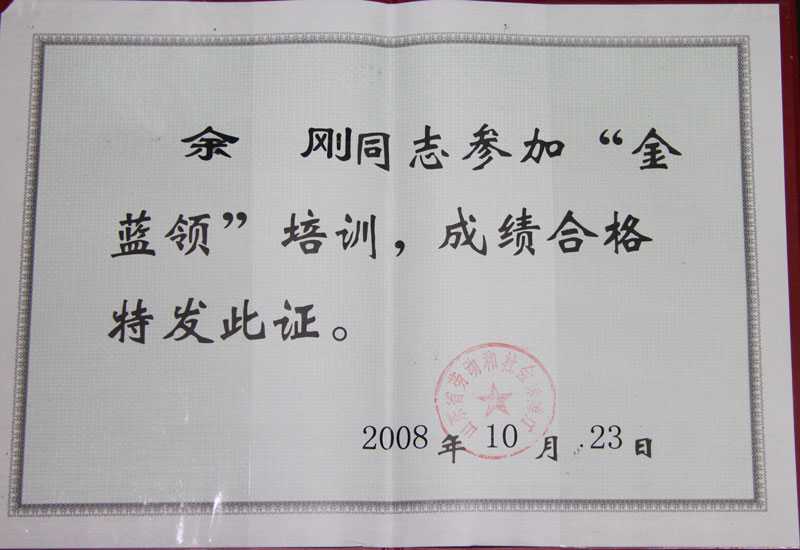 余 刚同志参加“金
蓝领”培训，成绩合格
特发此证。
山东省劳动和社会保障厅
2008年10月23日